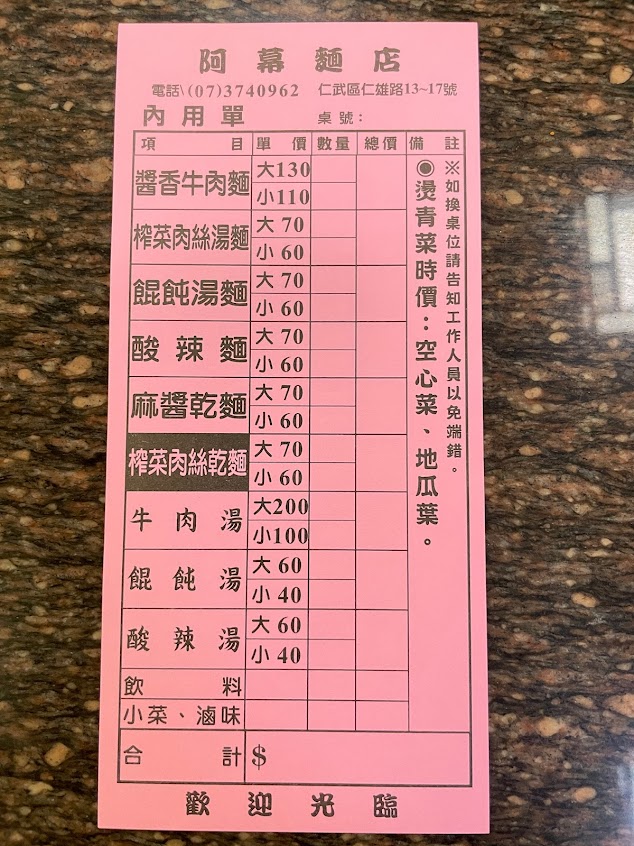 阿幕麵店
電話\(07)3740962 仁武區仁雄路13~17號
內用單 桌號：
項目 單價 數量 總價 備註
醬香牛肉麵 大130
小110
榨菜肉絲湯麵 大 70
小 60
餛飩湯麵 大 70
小 60
酸辣麵 大 70
小 60
麻醬乾麵 大 70
小 60
榨菜肉絲乾麵 大 70
小 60
牛肉湯 大200
小100
餛飩湯 大 60
小 40
酸辣湯 大 60
小 40
飲料
小菜、滷味
※如換桌位請告知工作人員以免端錯。
◉燙青菜時價：空心菜、地瓜葉。
合計 $
歡迎光臨